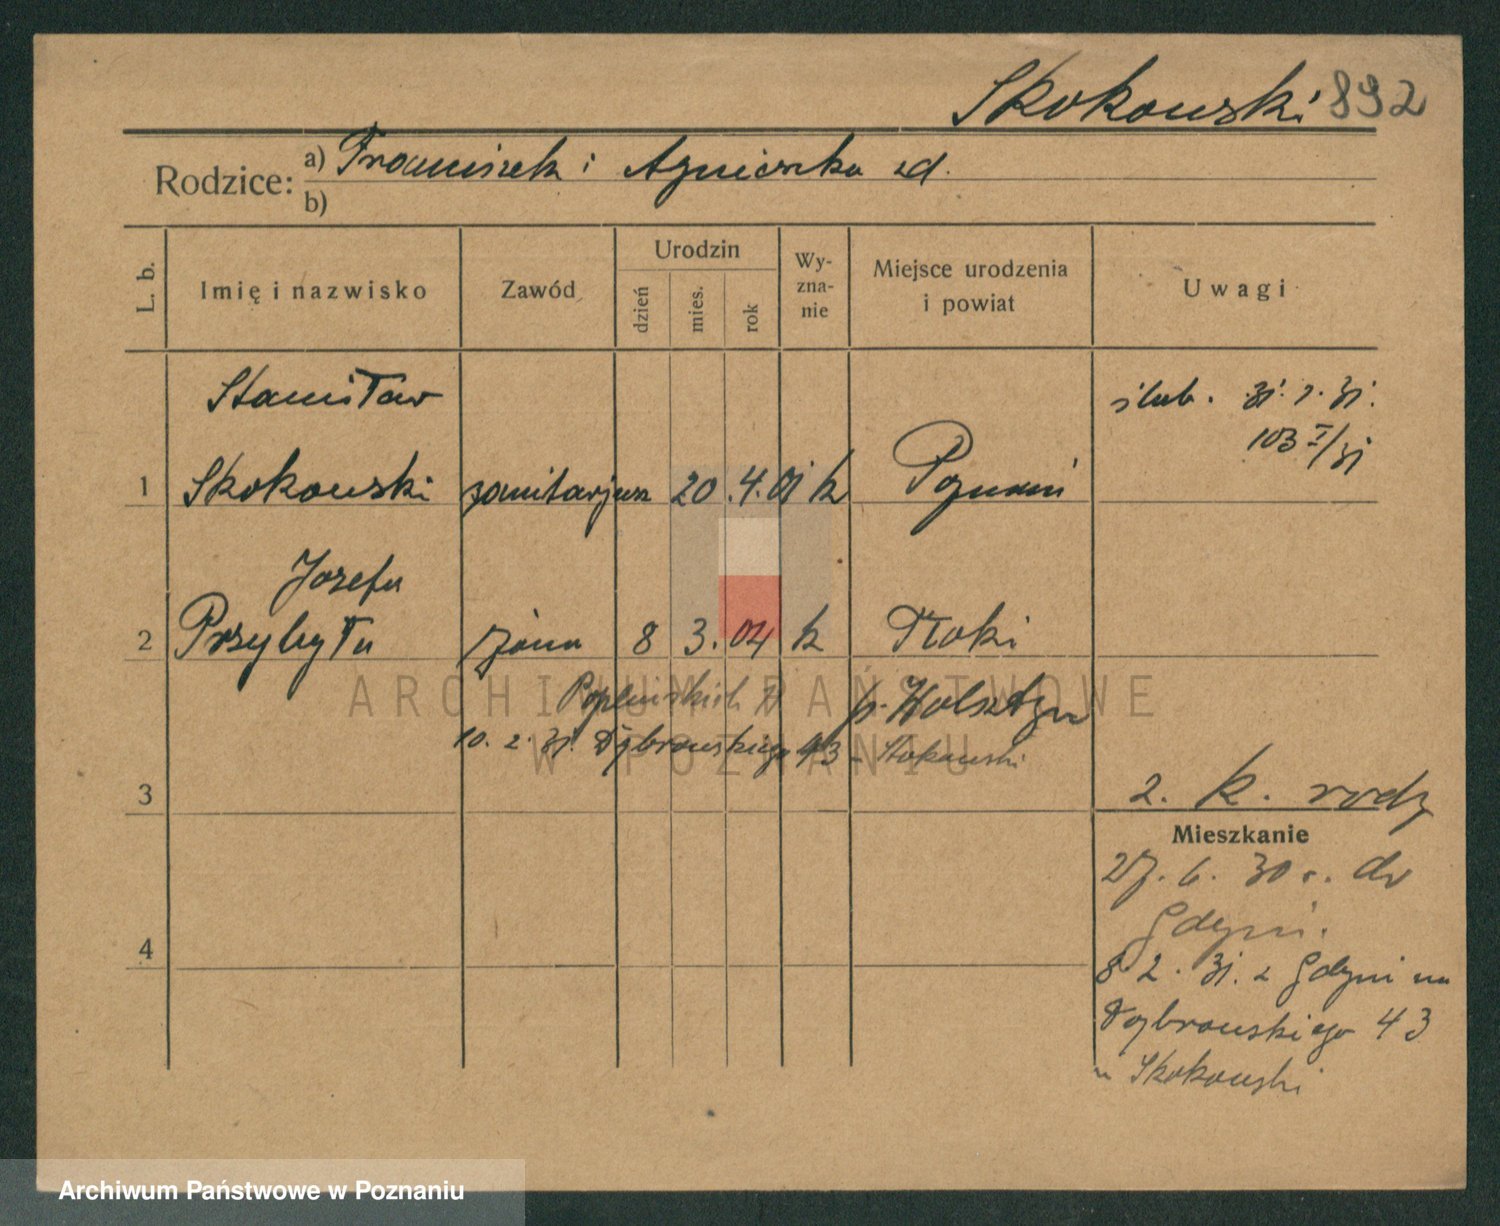 Skokowski 892
Rodzice: a) Franciszek i Agnieszka zd.
b)
L. b. Imię i nazwisko Zawód Urodzin dzień mies. rok Wy-zna-nie Miejsce urodzenia i powiat Uwagi
Stanisław ślub. 31.1.31.
103 I/31
1 Skokowski sanitarjusz 20.4.01 k Poznań
Józefa
2 Przybyła żona 8 3. 04 k Tłoki
p. Wolsztyn
10. 2. 31. Dąbrowskiego 43 - Skokowski
ARCHIWUM PAŃSTWOWE
W POZNANIU
3 2. k. rodz
Mieszkanie
27. 6. 30 r. do
Gdyni.
4
8 2. 31. z Gdyni na
Dąbrowskiego 43
u Skokowski
Archiwum Państwowe w Poznaniu